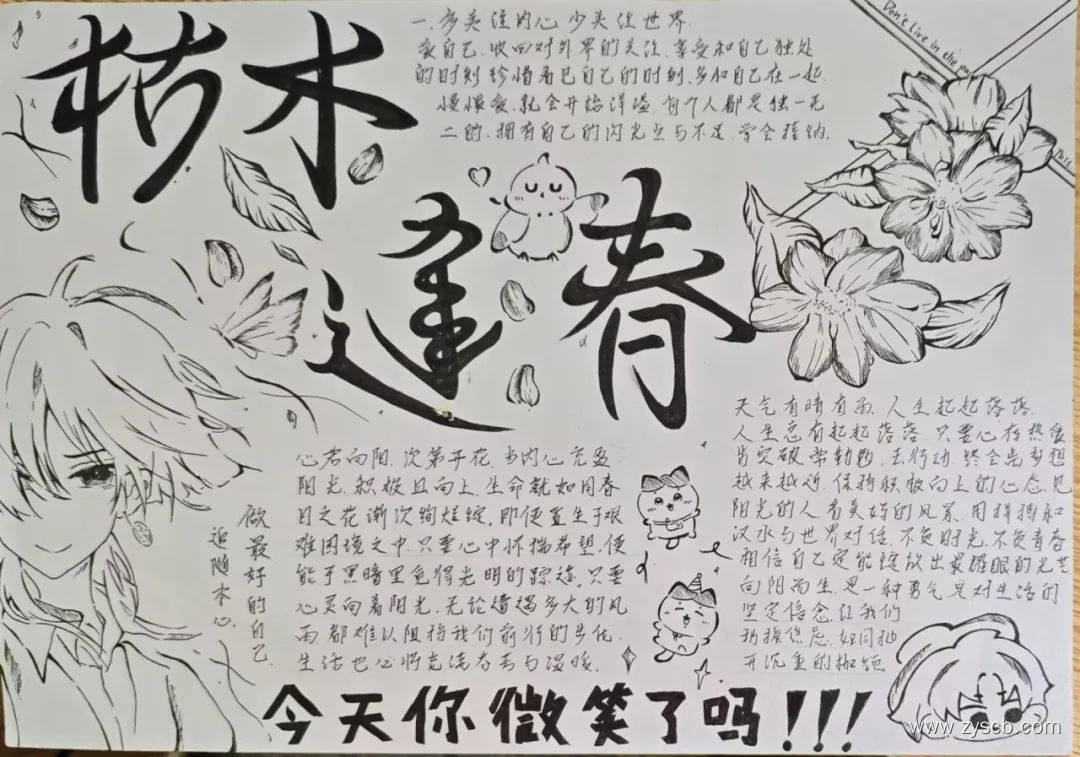 枯木
逢春
一、多关注内心 少关注世界.
爱自己.收回对外界的关注.享受和自己独处
的时刻 珍惜看见自己的时刻.多和自己在一起.
慢慢爱.就会开始洋溢.每个人都是独一无
二的.拥有自己的闪光点与不足.学会接纳.
Don't live in the
心若向阳.次第开花.当内心充盈
阳光.积极且向上.生命就如同春
日之花渐次绚烂绽.即便置生于艰
难困境之中.只要心中怀揣希望.便
能于黑暗里觅得光明的踪迹.只要
心灵向着阳光.无论遭遇多大的风
雨都难以阻挡我们前行的步伐.
生活也必将充满 与温暖.
做最好的自己
追随本心.
天气有晴有雨.人生起起落落.
人生总有起起落落.只要心存热爱
肯突破常勤勉.去行动.终会离梦想
越来越近.保持积极向上的心态.见
阳光的人看美好的风景.用拼搏和
汉水与世界对话.不负时光.不负青春
相信自己定能绽放出最耀眼的光芒
向阳而生.是一种勇气.是对生活的
坚定信念.让我们
开沉重的枷锁
今天你微笑了吗!!!
www.zyscb.com